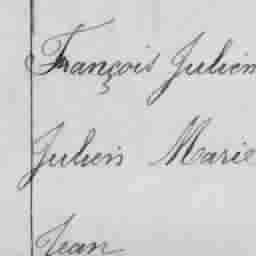 François Julien
Julien Marie
Jean